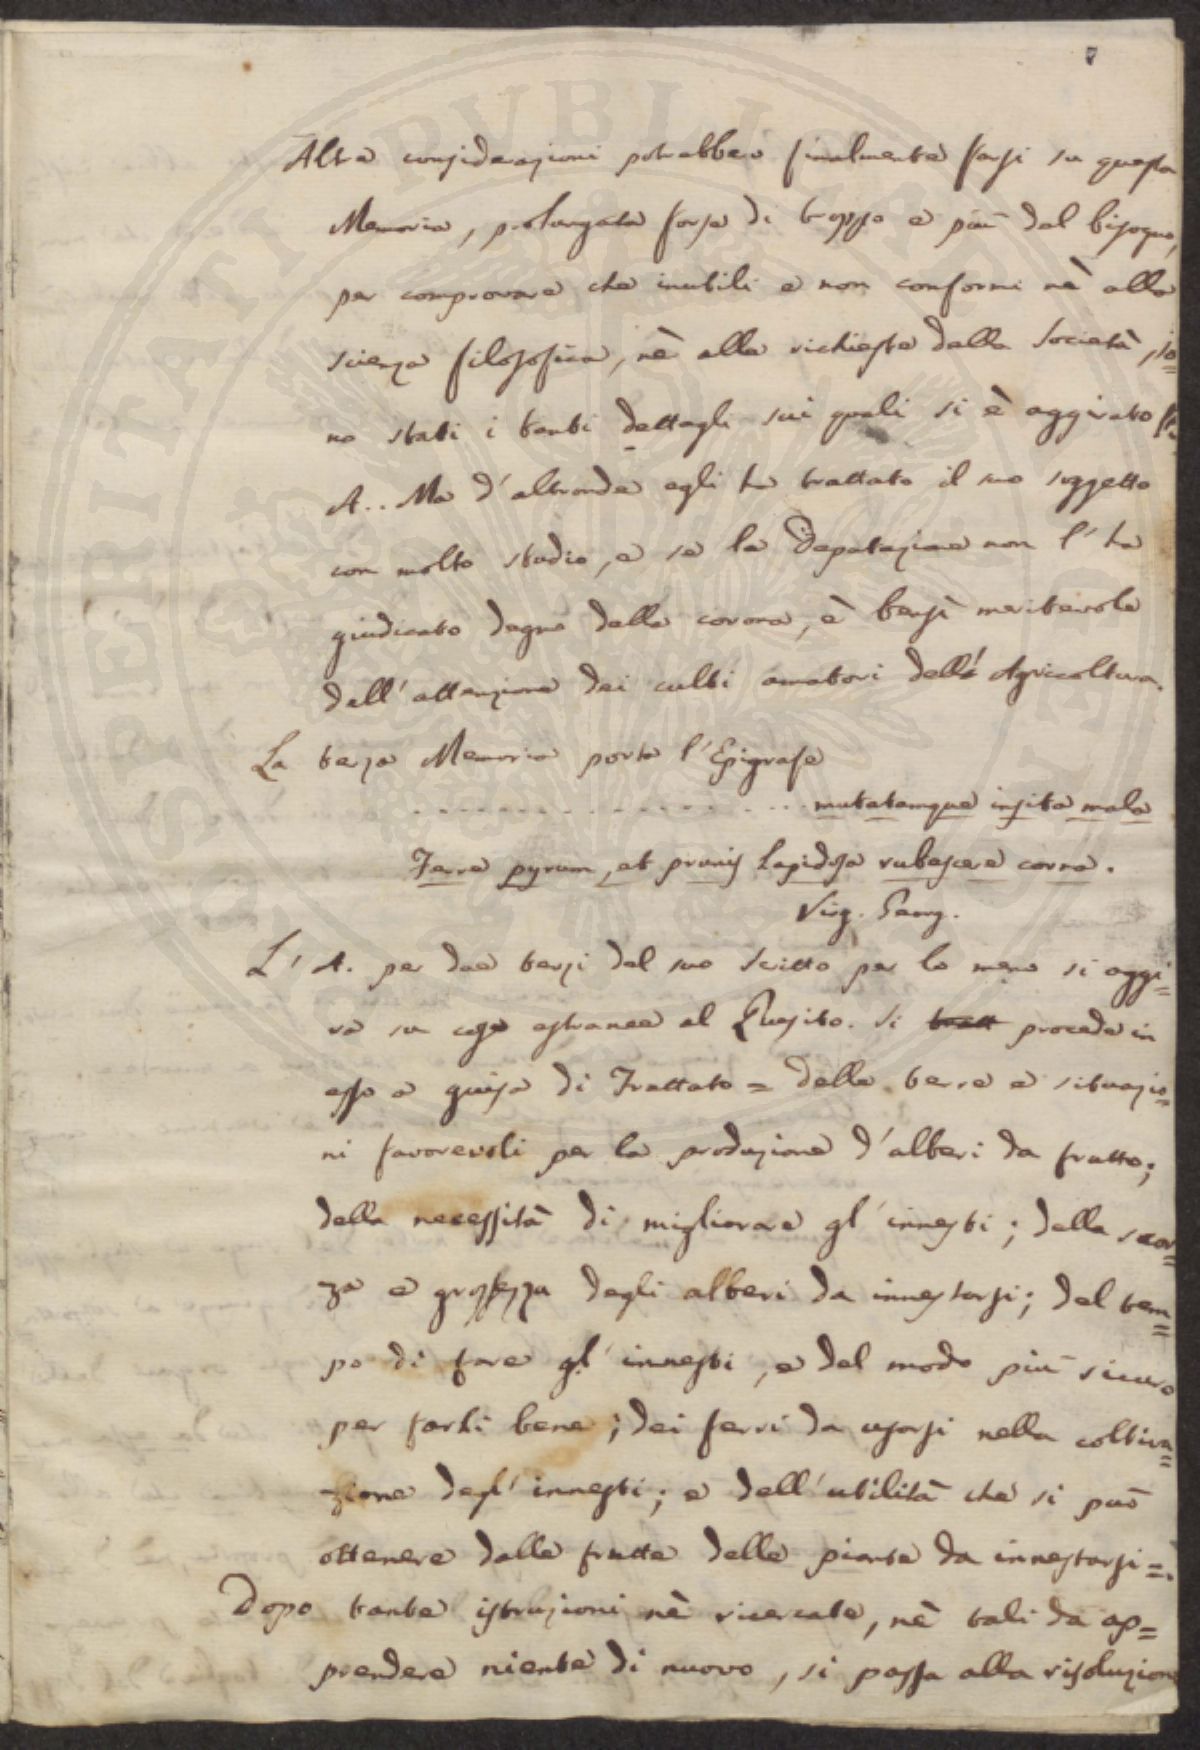 7
Altre considerazioni potrebbero finalmente farsi su questa
Memoria, prolungata forse di troppo e più del bisogno,
per comprovare che inutili e non conformi nè alla
scienza filosofica, nè alle richieste della Società, so=
no stati i tanti dettagli sui quali si è aggirato
A.. Ma d'altronde egli ha trattato il suo soggetto
con molto studio, e se la Deputazione non l'ha
giudicato degno della corona, è bensì meritevole
dell'attenzione dei culti amatori dell'Agricoltura.
La terza Memoria porta l'Epigrafe
. . . . . . . . . . . . . . . . . mutatamque insita mala
Ferre pyrum, et prunis lapidosa rubescere corna.
Virg. Georg.
L'A. per due terzi del suo scritto per lo meno si aggi=
ra su cose estranee al Quesito. Si tratt procede in
esso a guisa di Trattato = delle terre e situazio=
ni favorevoli per la produzione d'alberi da frutto;
della necessità di migliorare gl'innesti; della scor=
za e grossezza degli alberi da innestarsi; del tem=
po di fare gl'innesti, e del modo più sicuro
per farli bene; dei ferri da usarsi nella coltiva=
zione degl'innesti; e dell'utilità che si può
ottenere dalle frutte delle piante da innestarsi =.
Dopo tante istruzioni nè ricercate, nè tali da ap=
prendere niente di nuovo, si passa alla risoluzione